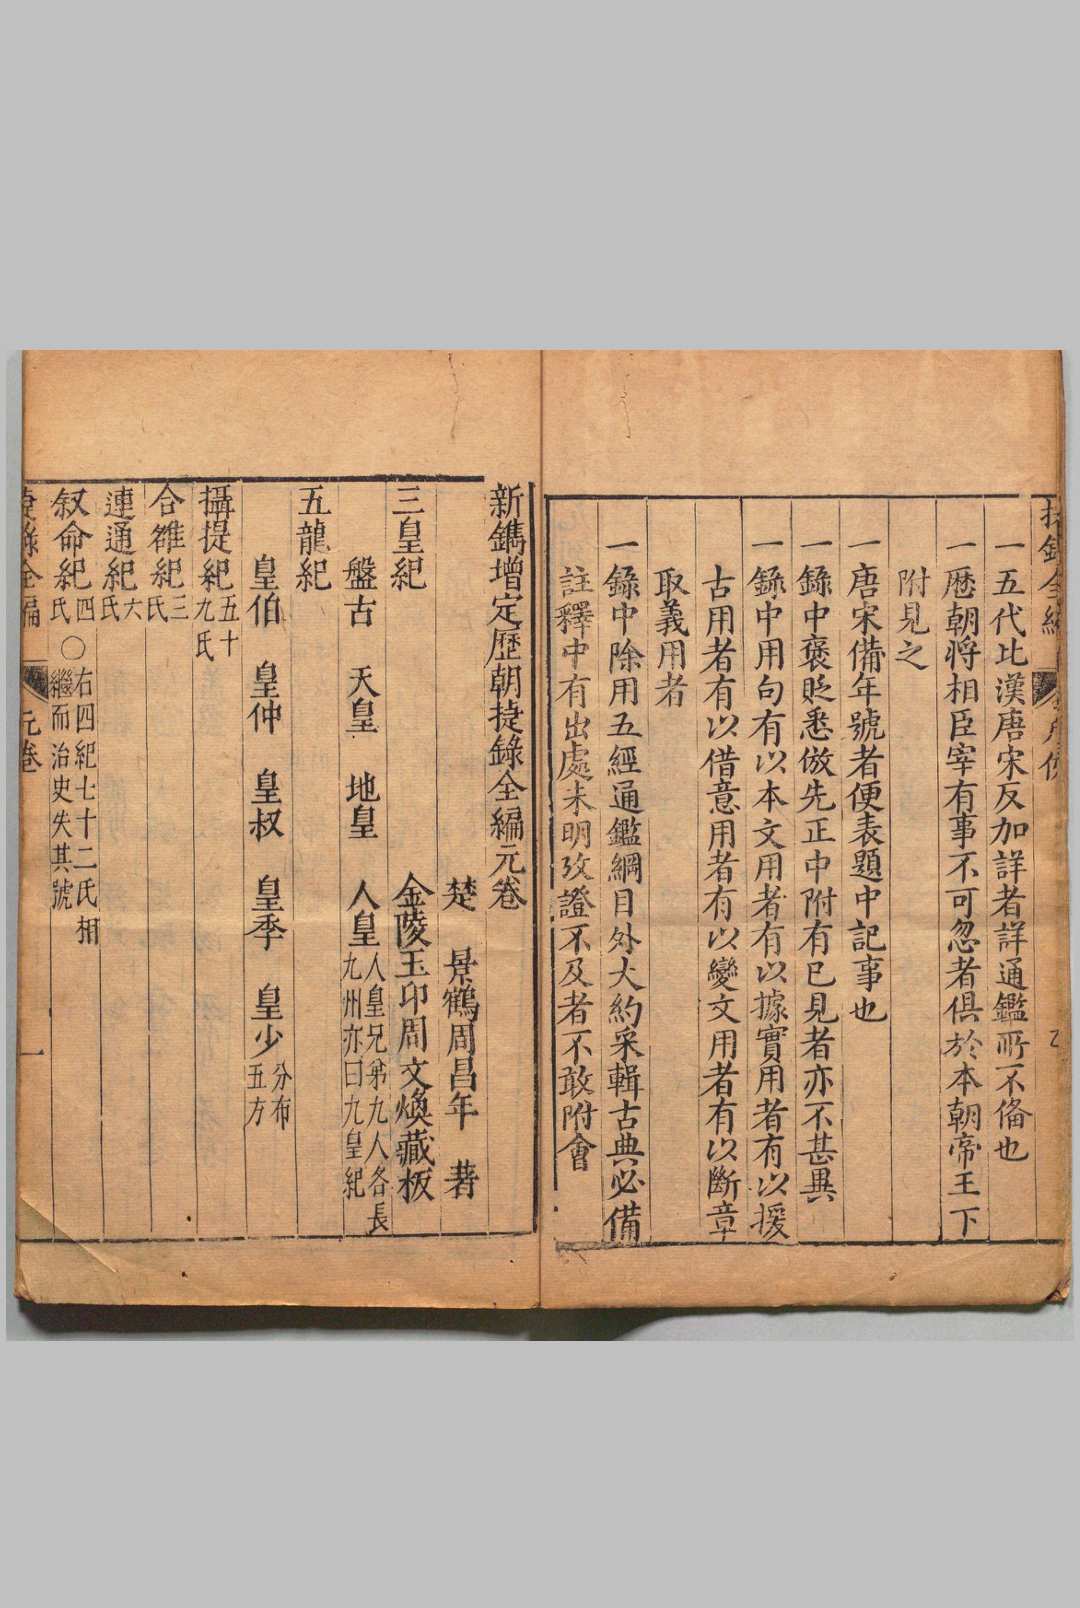 一五代比漢唐宋反加詳者詳通鑑所不俻也
一歷朝將相臣宰有事不可忽者俱於本朝帝王下
附見之
一唐宋備年號者便表題中記事也
一錄中褒貶悉倣先正中附有已見者亦不甚異
一錄中用句有以本文用者有以據實用者有以援
古用者有以借意用者有以變文用者有以斷章
取義用者
一錄中除用五經通鑑綱目外大約采輯古典必備
註釋中有出處未明攷證不及者不敢附會
新鐫增定歷朝捷錄全編元卷
楚 景鶴周昌年 著
金陵玉印周文煥藏板
三皇紀
盤古 天皇 地皇 人皇人皇兄弟九人各長九州亦曰九皇紀
五龍紀
皇伯 皇仲 皇叔 皇季 皇少分布五方
攝提紀五十九氏
合雒紀三氏
連通紀六氏
叙命紀四氏○右四紀七十二氏相繼而治史失其號
捷錄全編 元卷 一